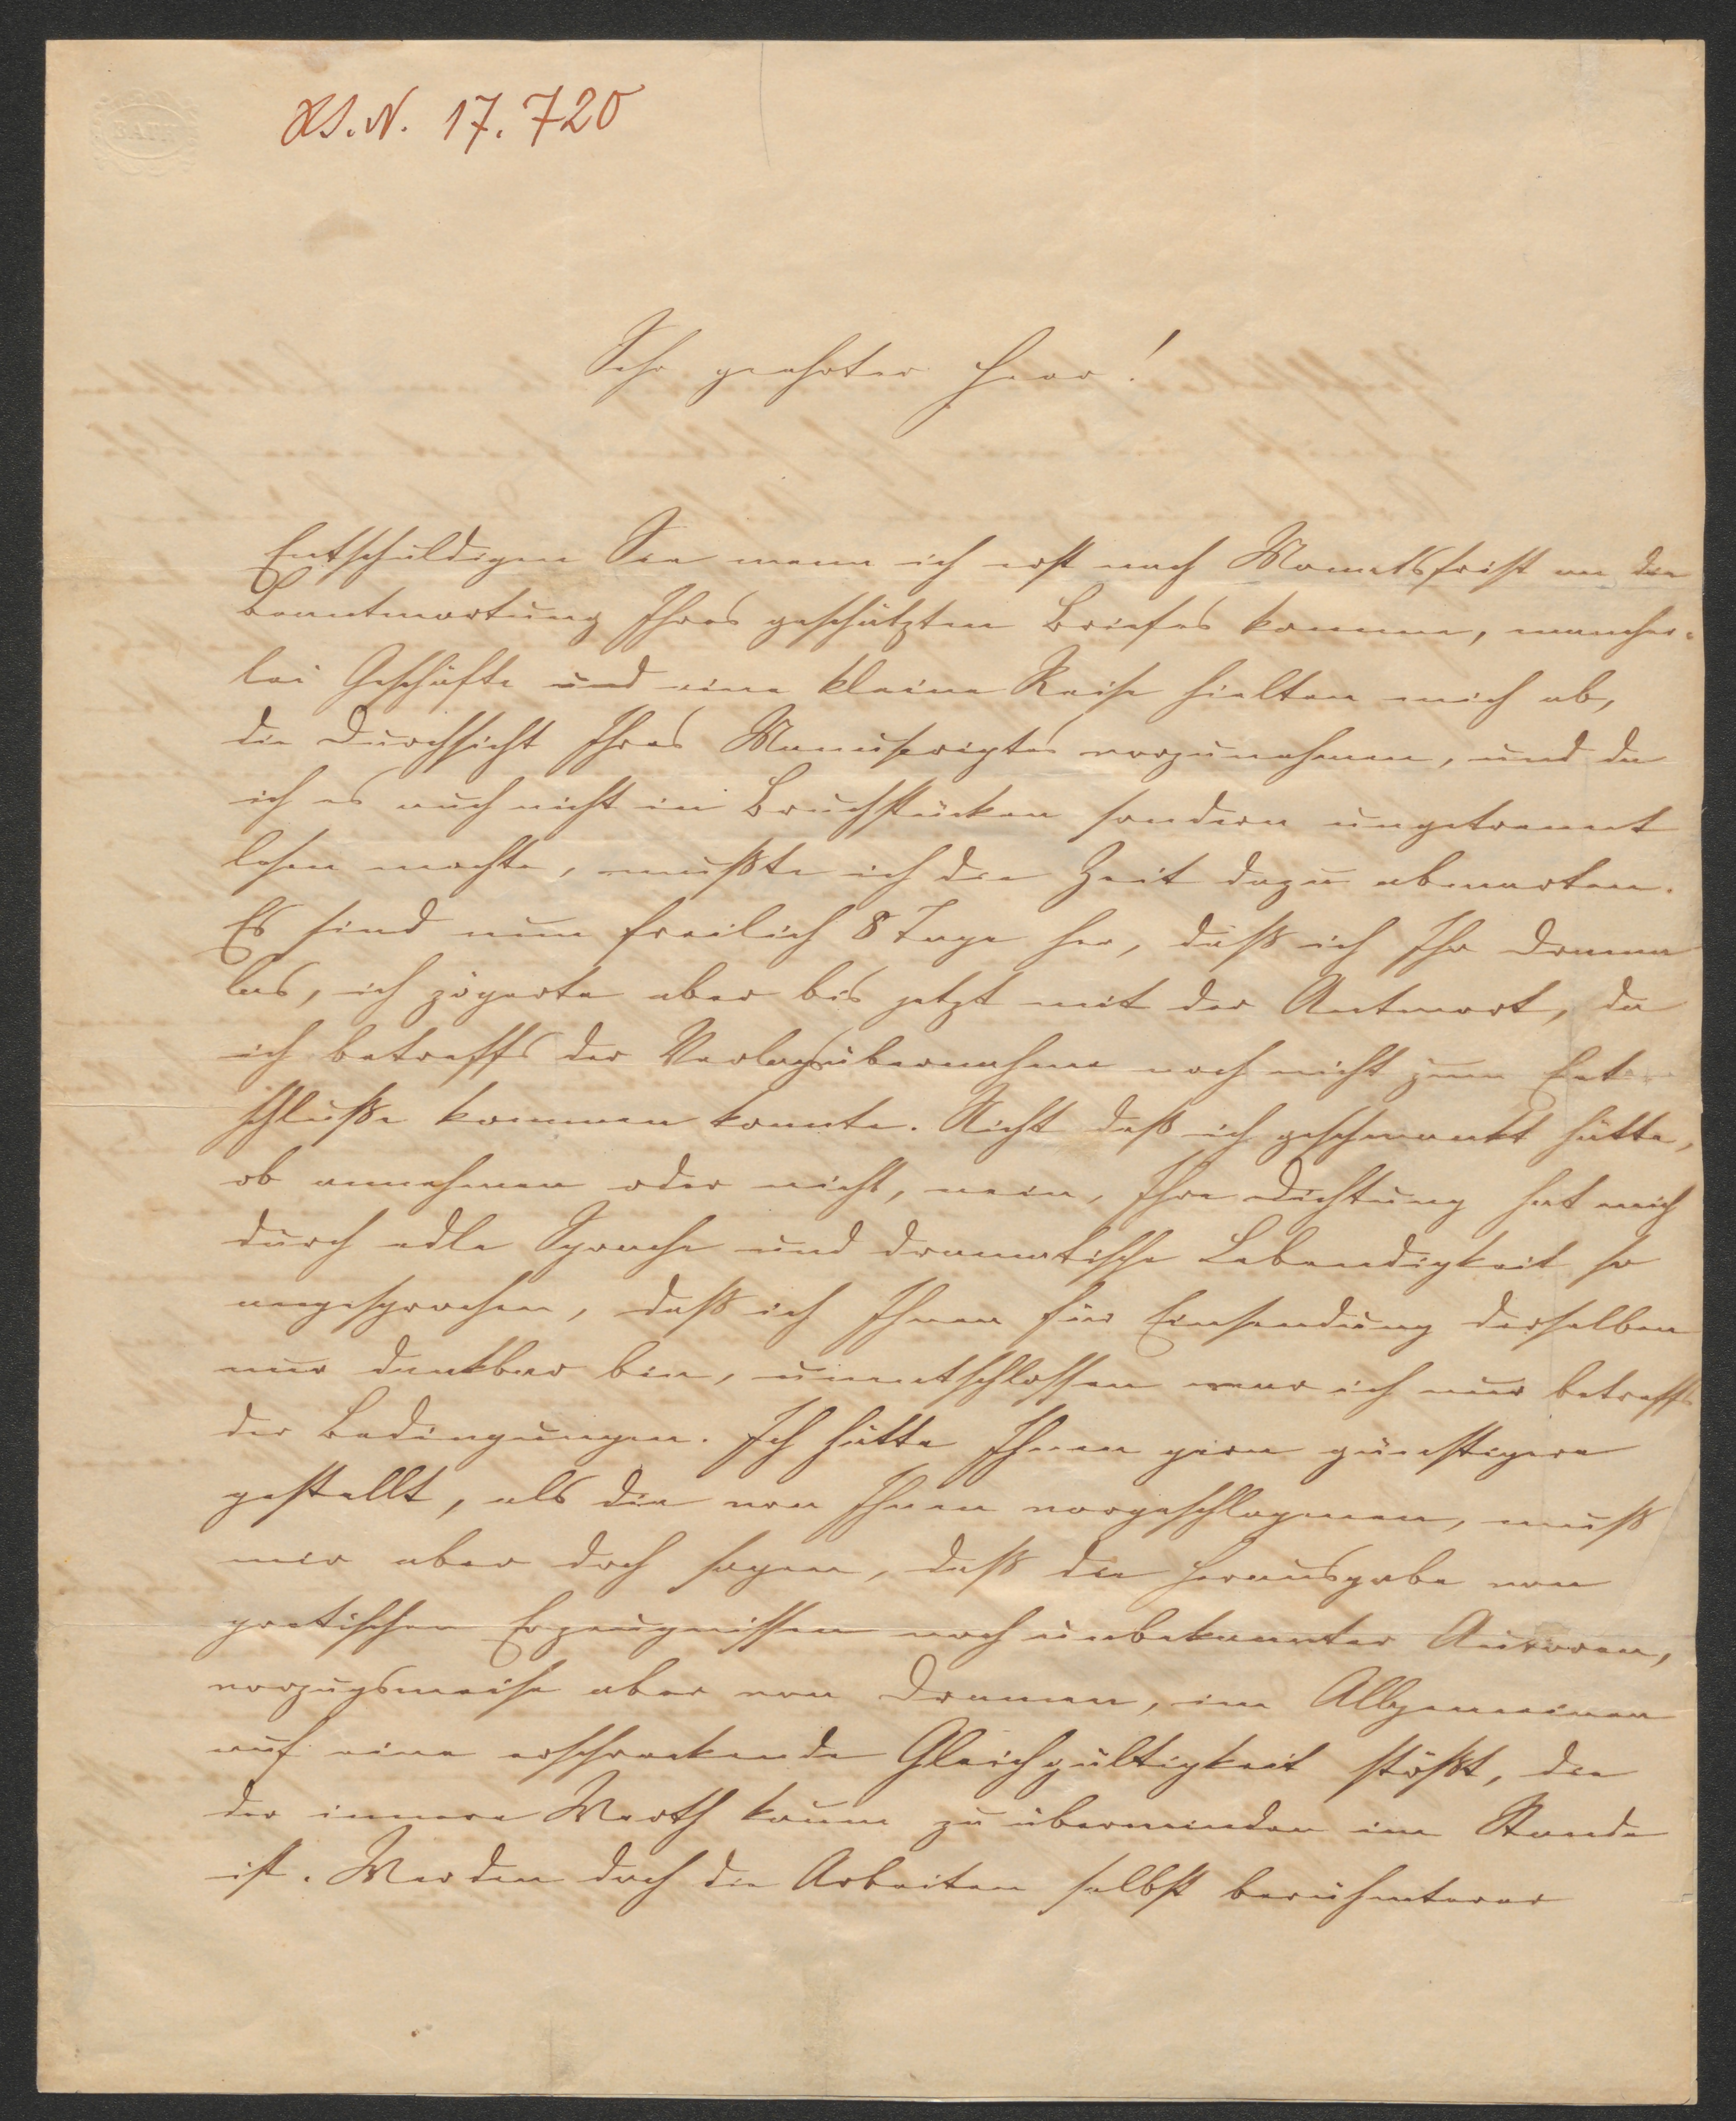 BATH
H.I.N. 17.720
Sehr geehrter Herr!
Entschuldigen Sie wenn ich erst nach Monatsfrist an die
Beantwortung Ihres geschätzten Briefes komme, mancher-
lei Geschäfte und eine kleine Reise hielten mich ab,
die Durchsicht Ihres Manuscriptes vorzunehmen, und da
ich es auch nicht in Bruchstücken sondern ungetrennt
lesen mochte, mußte ich die Zeit dazu abwarten.
Es sind nun freilich 8 Tage her, daß ich Ihr Drama
las, ich zögerte aber bis jetzt mit der Antwort, da
ich betreffs der Verlagsübernahme noch nicht zum Ent-
schluße kommen konnte. Nicht daß ich geschwankt hätte,
ob annehmen oder nicht, nein, Ihre Dichtung hat mich
durch edle Sprache und dramatische Lebendigkeit so
angesprochen, daß ich Ihnen für Einsendung derselben
nur dankbar bin, unentschlossen war ich nur betreffs
der Bedingungen. Ich hätte Ihnen gern günstigere
gestellt, als die von Ihnen vorgeschlagenen, muß
mir aber doch sagen, daß die Herausgabe von
poetischen Erzeugnissen noch unbekannter Autoren,
vorzugsweise aber von Dramen, im Allgemeinen
auf eine erschreckende Gleichgültigkeit stößt, die
der innere Werth kaum zu überwinden im Stande
ist. Werden doch die Arbeiten selbst berühmterer